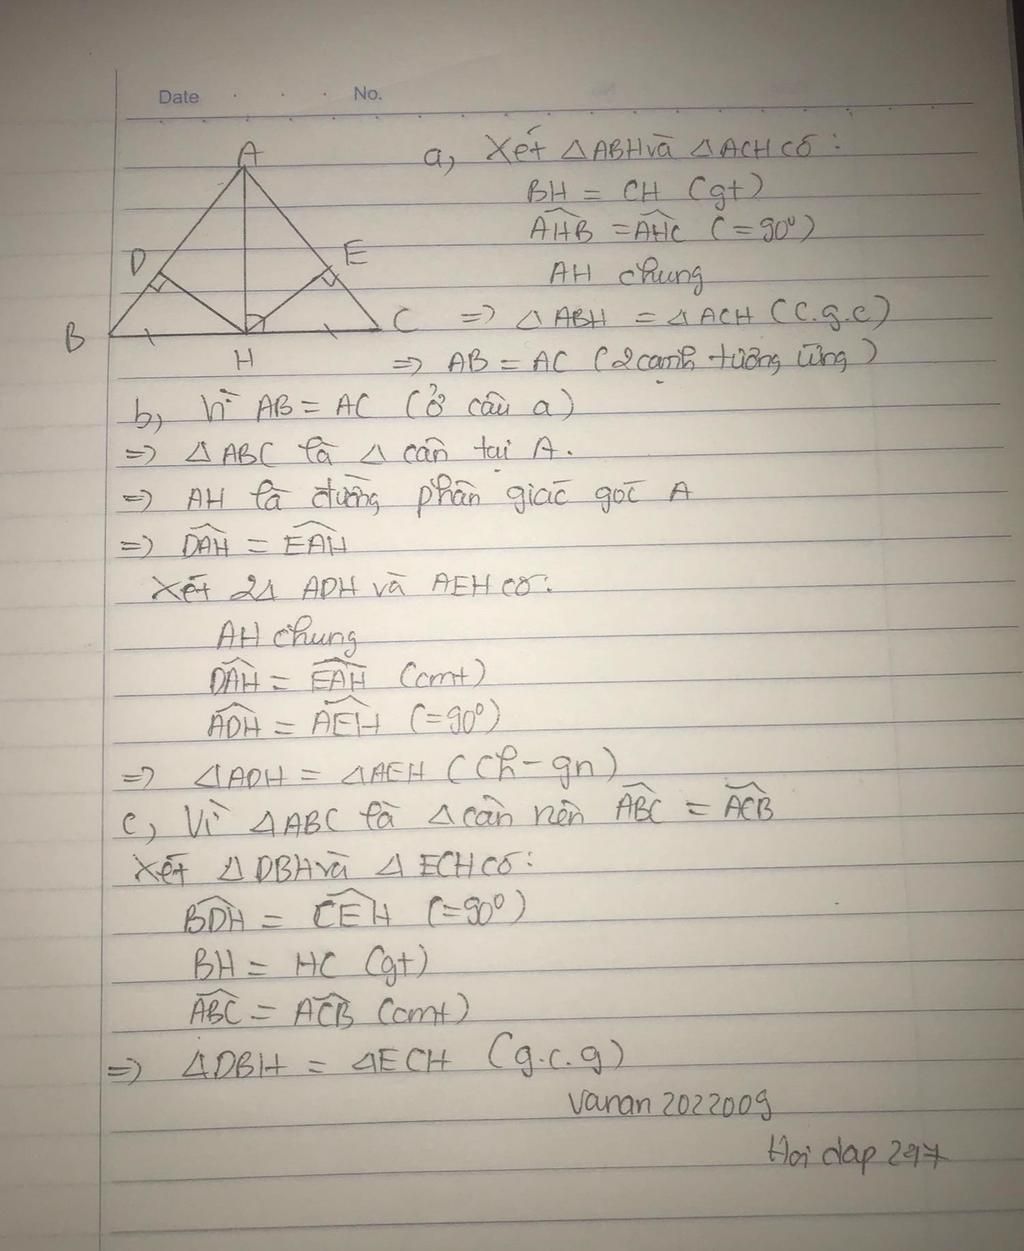 Date No.
A
D
E
B
C
H
a, Xét △ABH và △ACH có:
BH = CH (gt)
AHB = AHC (=90°)
AH chung
=> △ABH = △ACH (c.g.c)
=> AB = AC (2 cạnh tương ứng)
b, Vì AB = AC (ở câu a)
=> △ABC là △ cân tại A.
=> AH là đường phân giác góc A
=> DAH = EAH
Xét 2△ ADH và AEH có:
AH chung
DAH = EAH (cmt)
ADH = AEH (=90°)
=> △ADH = △AEH (Ch-gn)
c, Vì △ABC là △ cân nên ABC = ACB
Xét △DBH và △ECH có:
BDH = CEH (=90°)
BH = HC (gt)
ABC = ACB (cmt)
=> △DBH = △ECH (g.c.g)
Vanan 2022009
Hoi dap 247